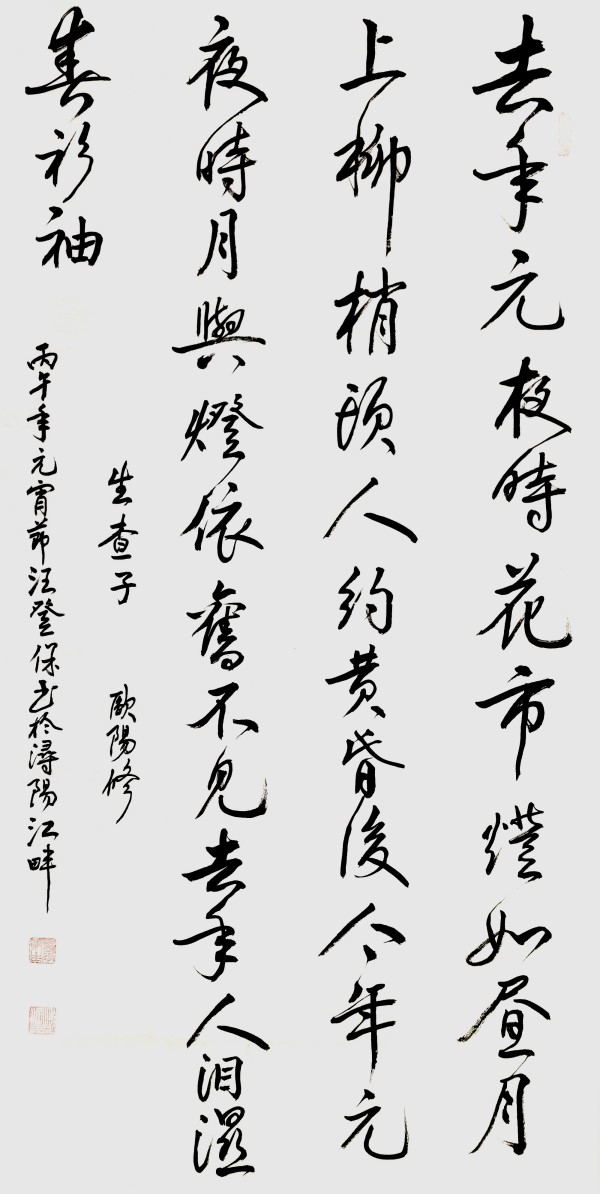 去年元夜時花市燈如晝月
上柳梢頭人約黄昏後今年元
夜時月與燈依舊不見去年人泪濕
春衫袖
生查子 歐陽修
丙午年元宵節汪登保書於潯陽江畔